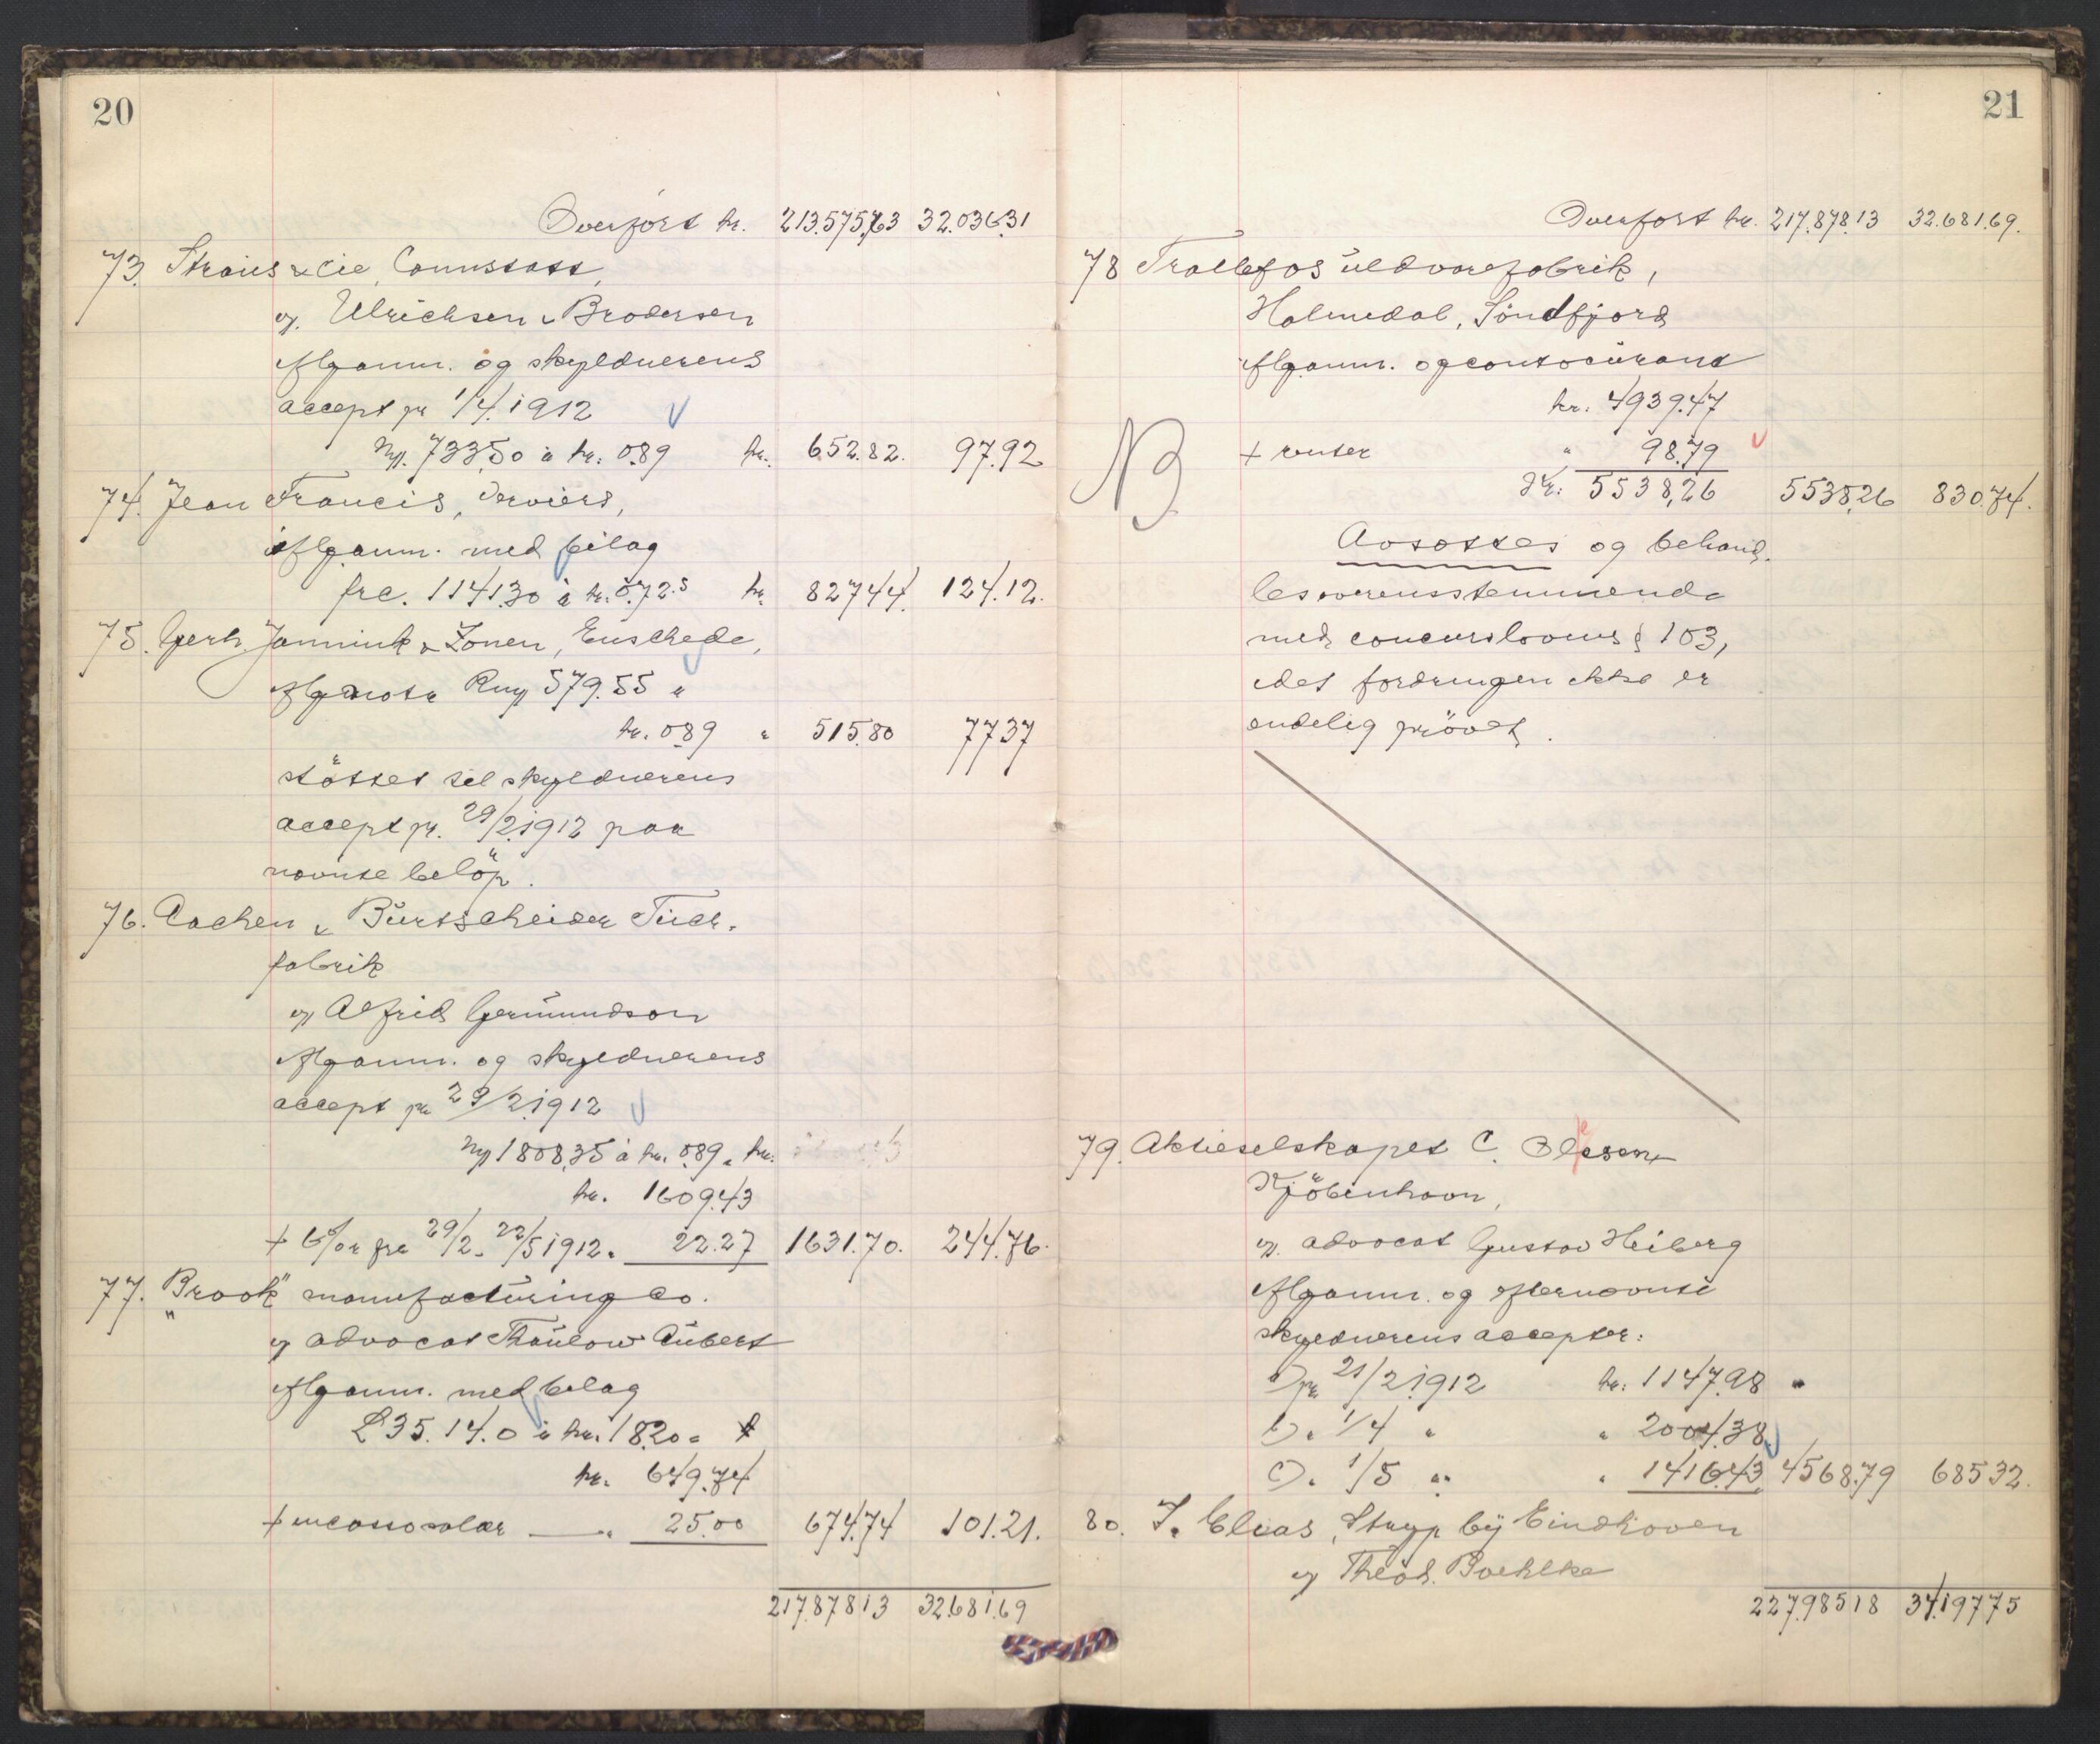 20
Overført kr. 213.575,63 32.036.31
73. Straus & Cie, Cannstatt,
v. Ulrichsen & Brodersen
Afganm. og skyldnerens
accept pr 1/4.1912
Mk. 733,50 à kr: 0.89 kr. 652.82. 97.92
74. Jean Francis, Verviers,
Afganm. med bilag
frc. 1141.30 à kr. 0.72.5 kr. 827.44. 124.12.
75. Gerh. Jannink & Zonen, Enschede,
Afgmot 579.55 à
kr. 0.89 " 515.80 77.37
støttet til skyldnerens
accept pr. 29/2.1912 paa
nævnte beløp.
76. Aachen & Burtscheider Tuch-
fabrik
v/ Alfrid Germundson
Afganm. og skyldnerens
accept pr 29/2.1912
Mk 1808,35 à kr. 0.89 " kr.
kr. 1609.43
+ 6 % fra 29/2 - 22/5 1912 " 22.27 1631.70. 244.76.
77. "Brook" manufacturing Co.
v/ advocat Thaulow Aubert
Afganm. med bilag
£ 35.14.0 à kr. 18.20 =
kr. 649.74
+ incassosalær " 25.00 674.74 101.21.
217.878 13 32.681.69
21
Overført kr. 217.878.13 32.681.69.
78 Trollefos uldvarefabrik,
Holmedal, Søndfjord
Afganm. og contocurant
kr: 4939.47
+ renter " 98.79
NB kr: 5538,26 5538,26 830.74.
Avsættes og behand-
les overensstemmende
med concurslovens § 103,
idet fordringen ikke er
endelig prövet.
79. Aktieselskapet C. Olesen,
Kjöbenhavn,
v. advocat Gustav Heiberg
Afganm. og efternævnte
skyldnerens accepter:
a) pr 21/2.1912 kr: 1147.98 "
b) " 1/4 " " 2004.38
c) " 1/5 " " 1416.43 4568.79 685 32.
80. J. Elias, Stryp bÿ Eindhoven
v/ Theod. Boehlke
227.985 18 34.197 75